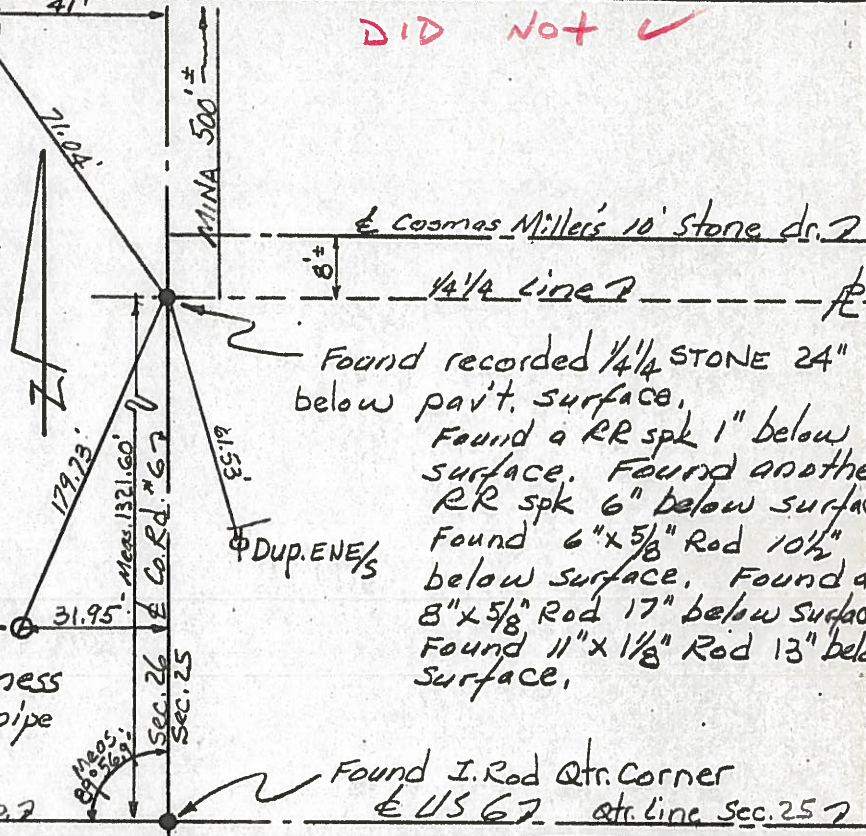 41'
DID Not ✓
71.04'
MINA 500'±
℄ Cosmas Miller's 10' Stone dr.
8'±
1/4 1/4 Line
℄
Found recorded 1/4 1/4 STONE 24"
below pav't. surface.
Found a RR spk 1" below
surface. Found anothe
RR spk 6" below surfa
Found 6" x 5/8" Rod 10½"
below surface. Found a
8" x 5/8" Rod 17" below surfac
Found 11" x 1 1/8" Rod 13" bel
surface.
N
179.73'
Meas. 1321.60'
℄ Co. Rd. #67
61.53'
Dup. ENE/S
31.95'
ness
pipe
Sec. 26
Sec. 25
Meas.
89°56.9'
Found I. Rod Qtr. Corner
℄ US 6
Qtr. Line Sec. 25